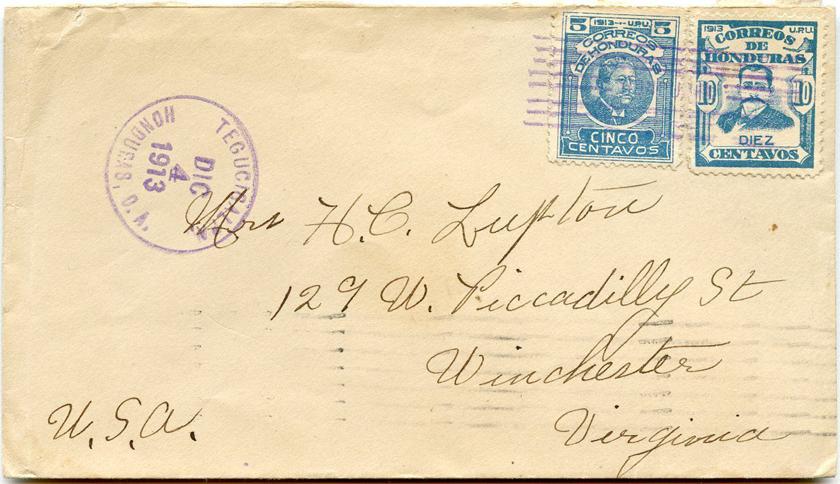 5 1913 U.P.U. 5
CORREOS
DE HONDURAS
CINCO
CENTAVOS
1913 U.P.U.
CORREOS
DE
HONDURAS
10 10
DIEZ
CENTAVOS
TEGUCIGALPA
DIC
4
1913
HONDURAS, C.A.
Mrs H. C. Lupton
129 W. Piccadilly St
Winchester
Virginia
U.S.A.